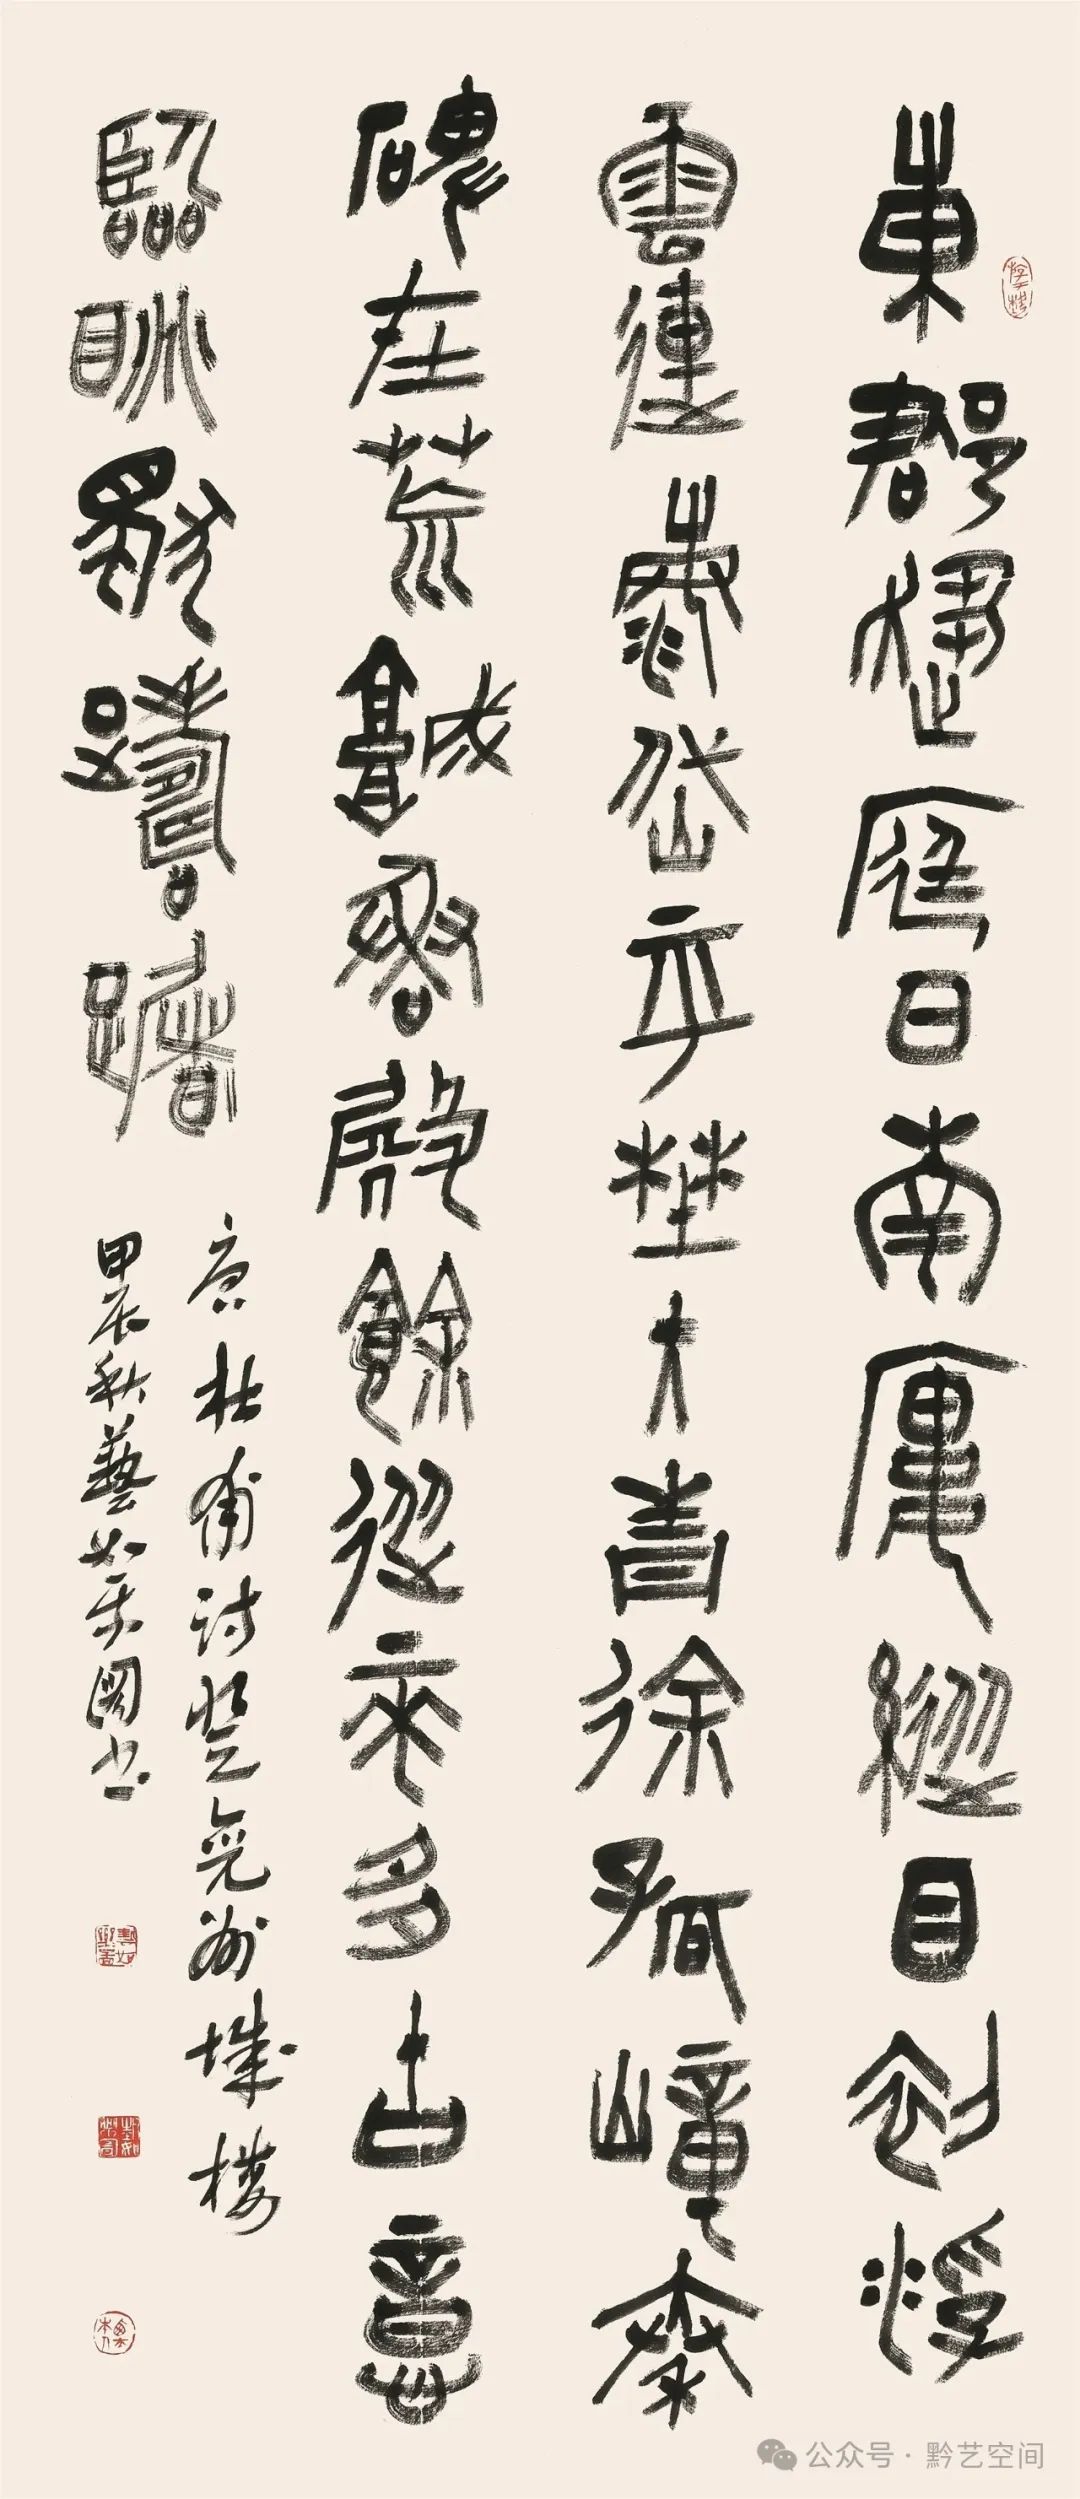 東郡趨庭日南廔縱目初浮
雲連海岱平埜入青徐孤嶂秦
碑在荒城魯殿餘從來多古意
臨眺獨躊躇
唐杜甫詩登兗州城樓
甲辰秋藝如 書
公众号·黔艺空间